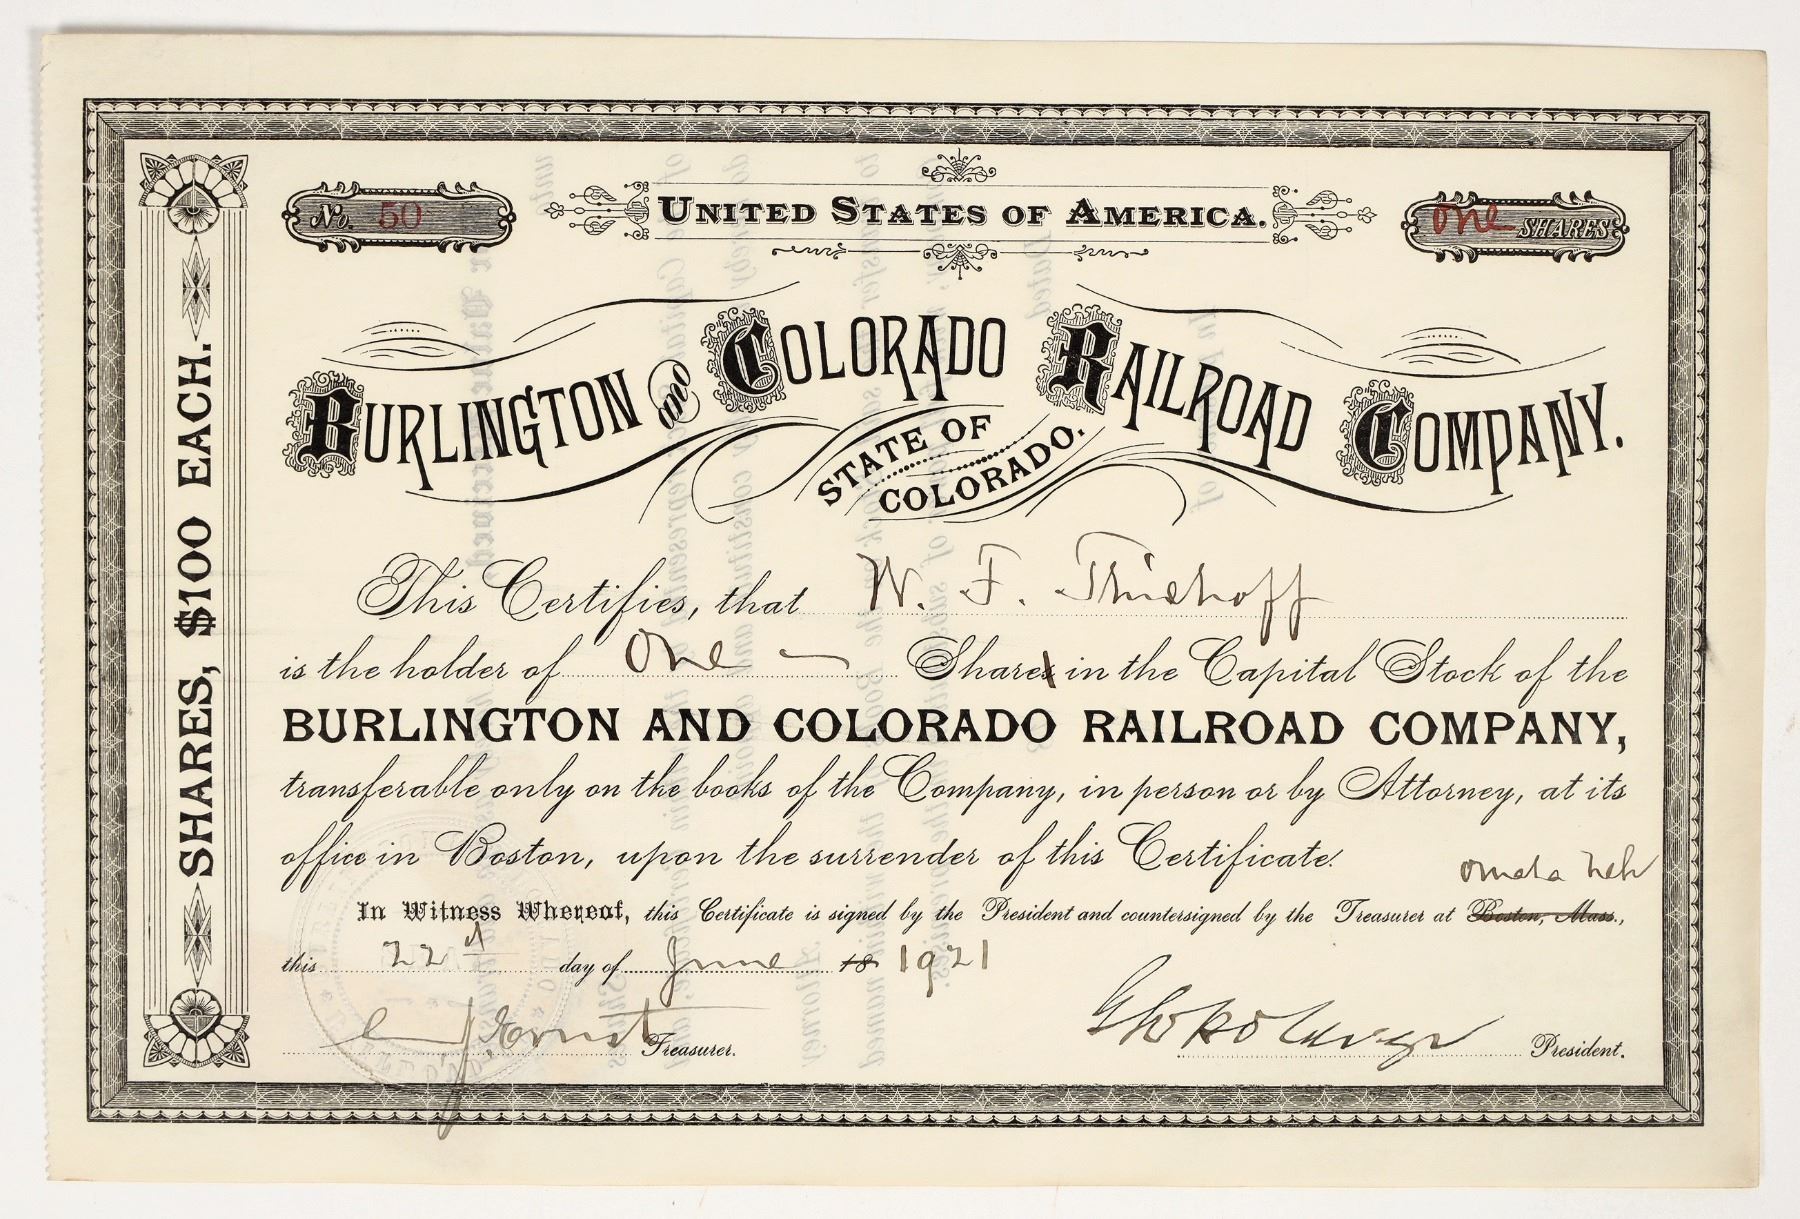 No. 50
UNITED STATES OF AMERICA.
one SHARES
BURLINGTON AND COLORADO RAILROAD COMPANY.
STATE OF
COLORADO.
SHARES, $100 EACH.
This Certifies, that W. F. Thiehoff
is the holder of One Shares in the Capital Stock of the
BURLINGTON AND COLORADO RAILROAD COMPANY,
transferable only on the books of the Company, in person or by Attorney, at its
office in Boston, upon the surrender of this Certificate.
Omaha Neb
In Witness Whereof, this Certificate is signed by the President and countersigned by the Treasurer at Boston, Mass.,
this 22d day of June 18 1921
Treasurer.
President.